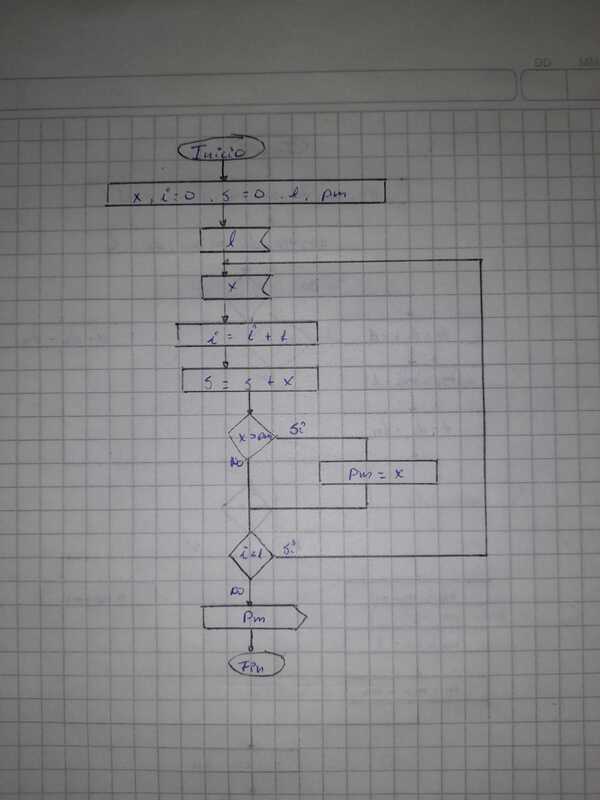 DD MM
Inicio
x, i=0, s=0, l, pm
l
x
i = i + 1
s = s + x
x>pm Si
NO
pm = x
i<l Si
NO
Pm
Fin